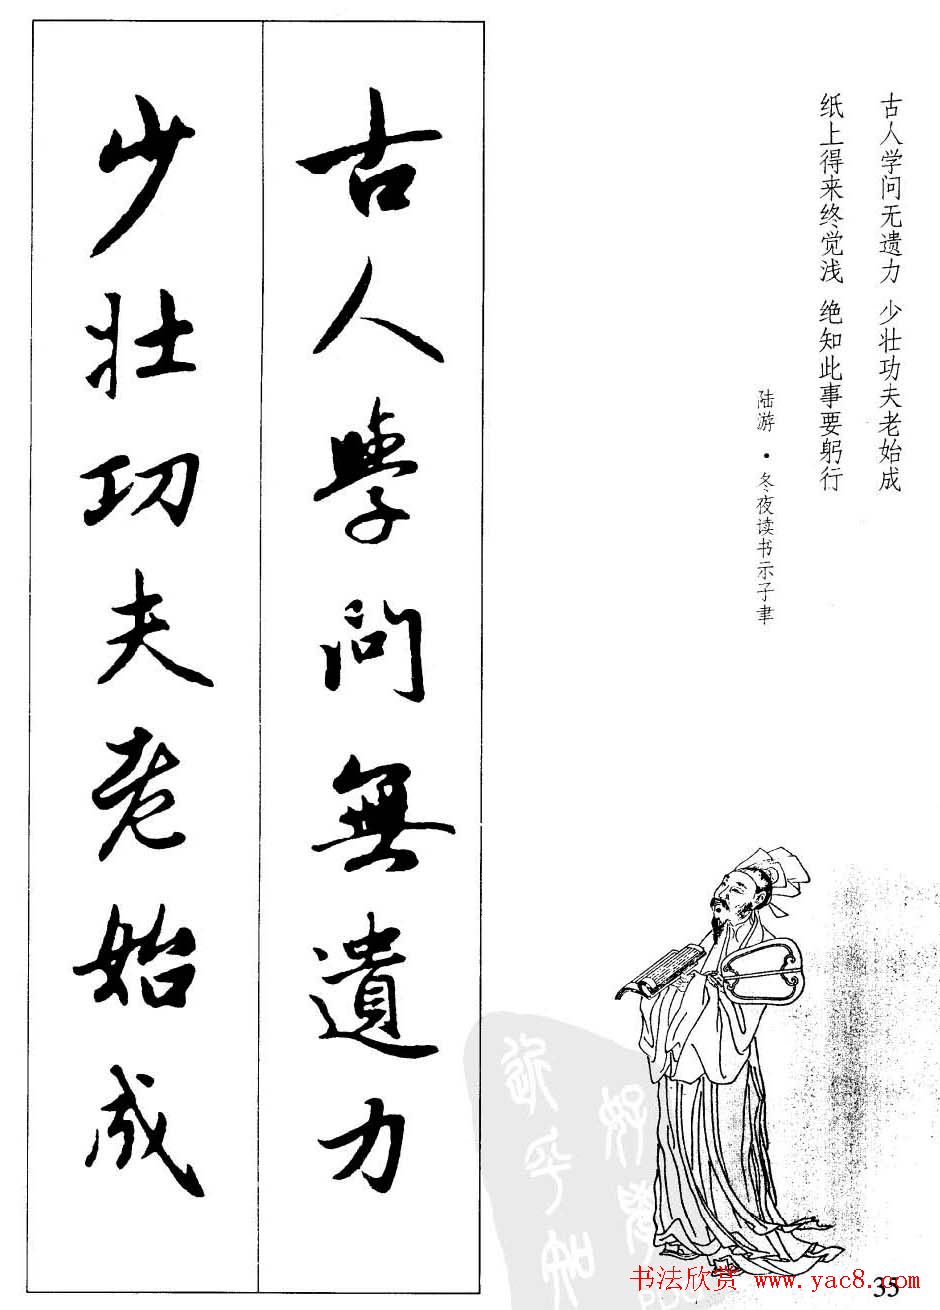 古人学问无遗力 少壮功夫老始成
纸上得来终觉浅 绝知此事要躬行
陆游·冬夜读书示子聿
古人學問無遺力
少壮功夫老始成
35
书法欣赏 www.yac8.com